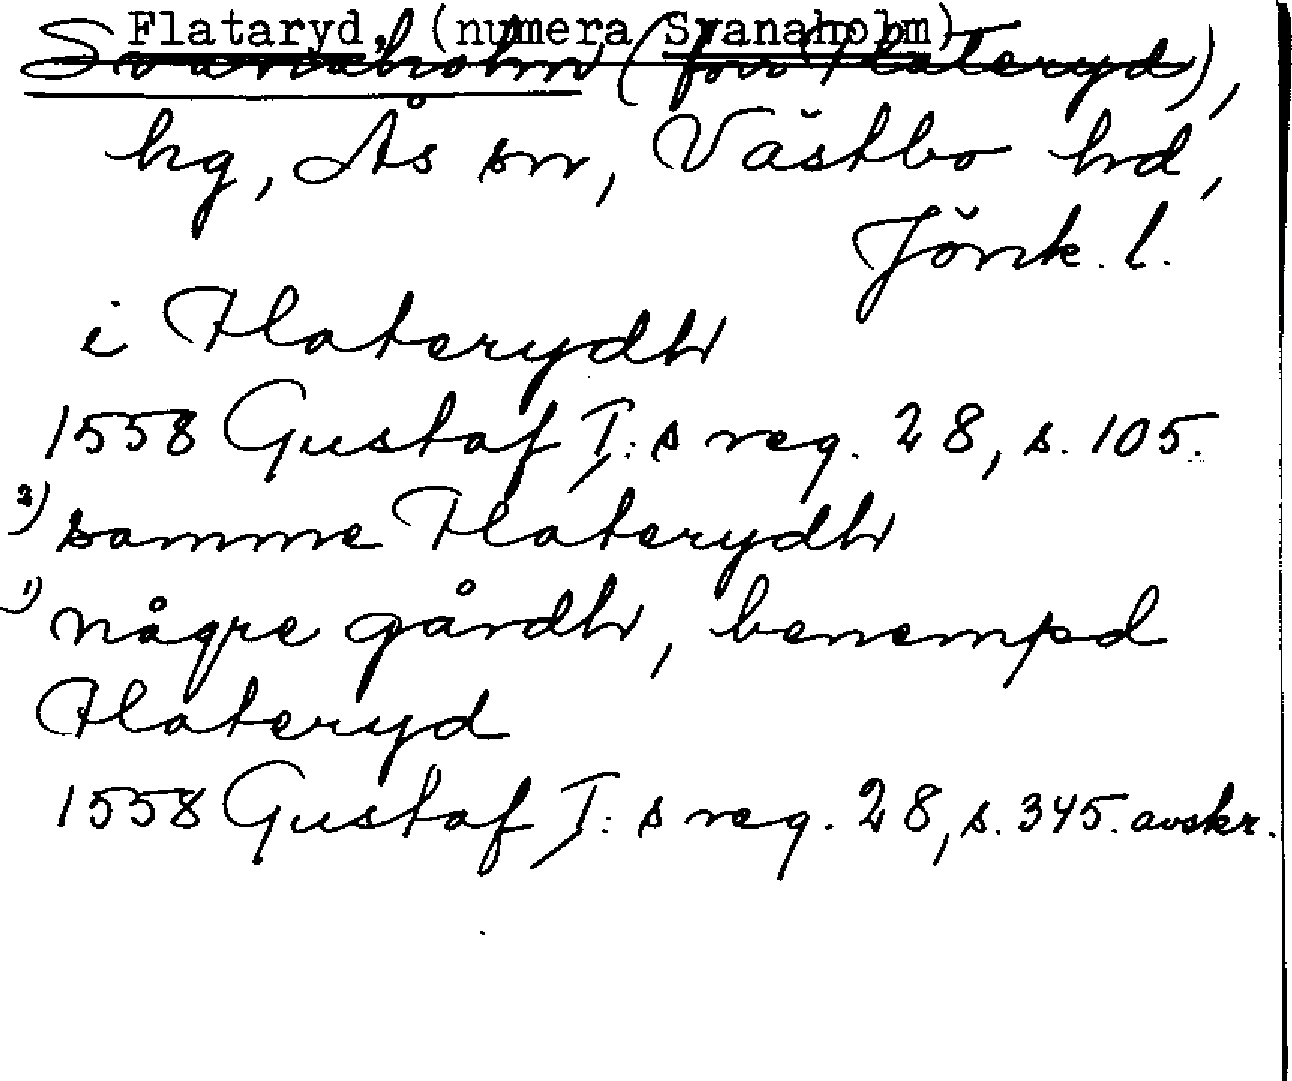 Flataryd, (numera Svanaholm)
Svanaholm (förr Flateryd),
hg, Ås sn, Västbo hd,
Jönk. l.
i Flaterydh
1558 Gustaf I:s reg. 28, s. 105.
2) samme Flaterydh
1) någre gårdh, benempd
Flateryd
1558 Gustaf I:s reg. 28, s. 345. avskr.